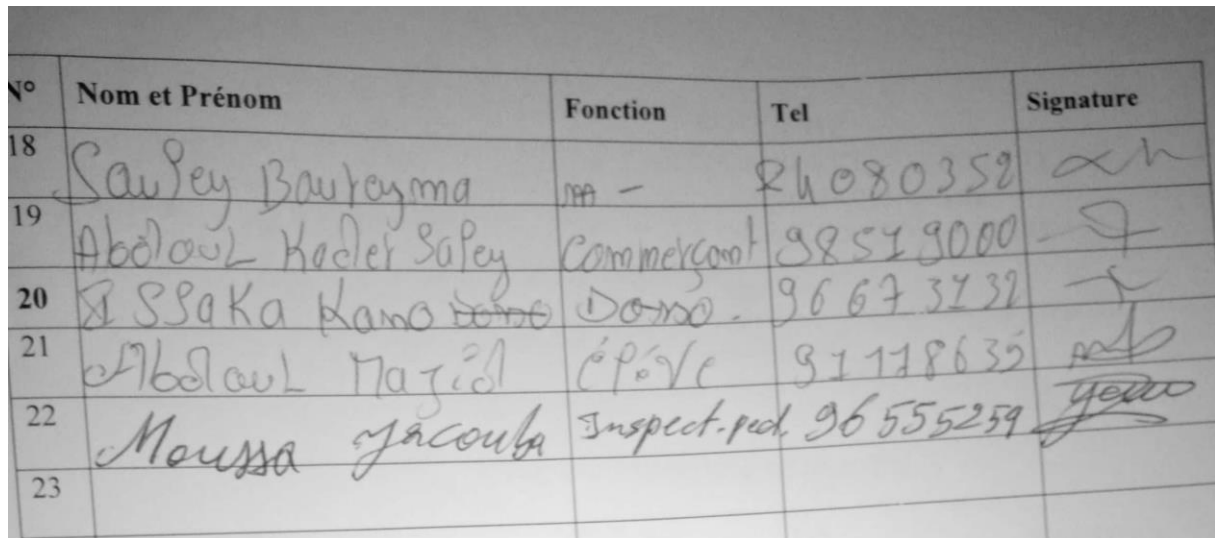 N° Nom et Prénom Fonction Tel Signature
18 Sauley Boureyma - 84080352
19 Abdoul Kader Saley Commerçant 98519000
20 ISSaKa Kano Dosso. 96673132
21 Abdoul Majid élève 91118635
22 Moussa Yacouba Inspect.ped. 96555259
23